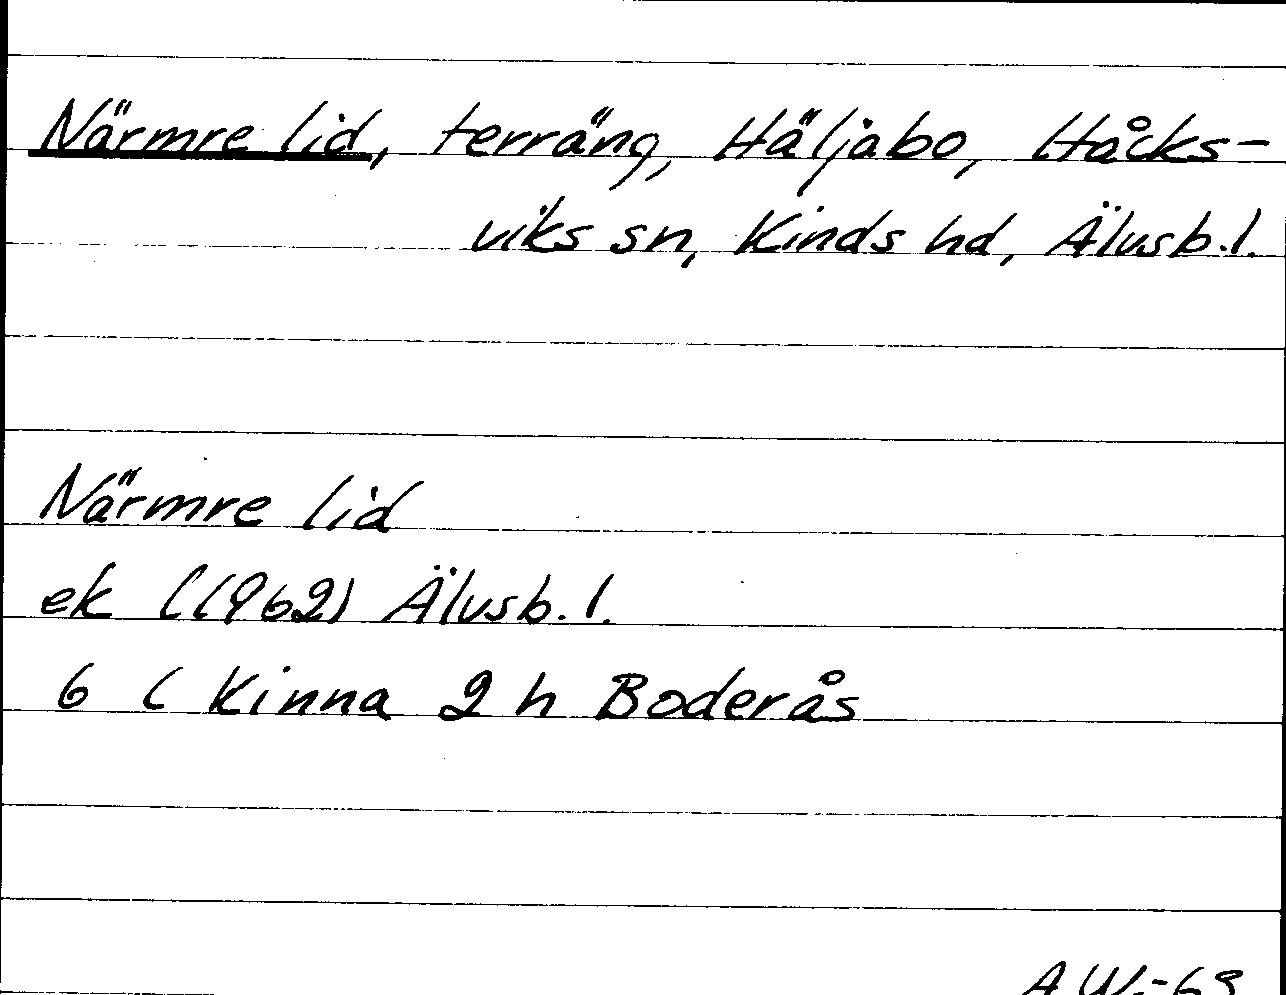 Närmre lid, terräng, Häljabo, Håcks-
viks sn, Kinds hd, Älvsb.l.
Närmre lid
ek (1962) Älvsb.l.
6 C Kinna 2 h Boderås
A W.-63